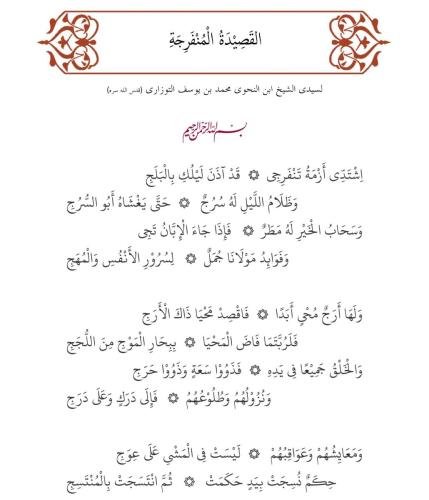 القَصِيْدَةُ الْمُنْفَرِجَةِ
لسيدى الشيخ ابن النحوى محمد بن يوسف التوزارى (قدس الله سره)
بسم الله الرحمن الرحيم
اِشْتَدِّى أَزْمَةُ تَنْفَرِجِى ۞ قَدْ آذَنَ لَيْلُكِ بِالْبَلَجِ
وَظَلَامُ اللَّيْلِ لَهُ سُرُجٌ ۞ حَتَّى يَغْشَاهُ أَبُو السُّرُجِ
وَسَحَابُ الْخَيْرِ لَهُ مَطَرٌ ۞ فَإِذَا جَاءَ الْإِبَّانُ تَجِى
وَفَوَايِدُ مَوْلَانَا جُمَلٌ ۞ لِسُرُورِ الْأَنْفُسِ وَالْمُهَجِ
وَلَهَا أَرَجٌ مُحْيٍ أَبَدًا ۞ فَاقْصِدْ مَحْيَا ذَاكَ الْأَرَجِ
فَلَرُبَّتَمَا فَاضَ الْمَحْيَا ۞ بِبِحَارِ الْمَوْجِ مِنَ اللُّجَجِ
وَالْخَلْقُ جَمِيْعًا فِى يَدِهِ ۞ فَذَوُوْا سَعَةٍ وَذَوُوْا حَرَجِ
وَنُزُوْلُهُمُ وَطُلُوْعُهُمُ ۞ فَإِلَى دَرَكٍ وَعَلَى دَرَجِ
وَمَعَايِشُهُمْ وَعَوَاقِبُهُمْ ۞ لَيْسَتْ فِى الْمَشْيِ عَلَى عِوَجِ
حِكَمٌ نُسِجَتْ بِيَدٍ حَكَمَتْ ۞ ثُمَّ انْتَسَجَتْ بِالْمُنْتَسِجِ